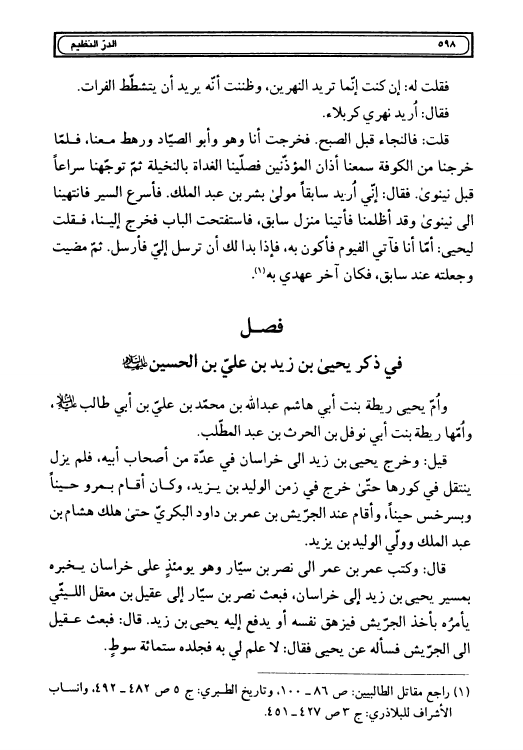 ٥٩٨
الدرّ النظيم
فقلت له: إن كنت إنّما تريد النهرين، وظننت أنّه يريد أن يتشطّط الفرات.
فقال: أُريد نهري كربلاء.
قلت: فالنجاء قبل الصبح. فخرجت أنا وهو وأبو الصيّاد ورهط معنا، فلمّا
خرجنا من الكوفة سمعنا أذان المؤذّنين فصلّينا الغداة بالنخيلة ثمّ توجّهنا سراعاً
قبل نينوىٰ. فقال: إنّي أُريد سابقاً مولىٰ بشر بن عبد الملك. فأسرع السير فانتهينا
الى نينوىٰ وقد أظلمنا فأتينا منزل سابق، فاستفتحت الباب فخرج إلينا، فقلت
ليحيى: أمّا أنا فآتي الفيوم فأكون به، فإذا بدا لك أن ترسل إليّ فأرسل. ثمّ مضيت
وجعلته عند سابق، فكان آخر عهدي به(١).
فصل
في ذكر يحيىٰ بن زيد بن عليّ بن الحسين
وأُمّ يحيى ريطة بنت أبي هاشم عبدالله بن محمّد بن عليّ بن أبي طالب ،
وأُمّها ريطة بنت أبي نوفل بن الحرث بن عبد المطّلب.
قيل: وخرج يحيى بن زيد الى خراسان في عدّة من أصحاب أبيه، فلم يزل
ينتقل في كورها حتّىٰ خرج في زمن الوليد بن يزيد، وكان أقام بمرو حيناً
وبسرخس حيناً، وأقام عند الجرّيش بن عمر بن داود البكريّ حتىٰ هلك هشام بن
عبد الملك وولّي الوليد بن يزيد.
قال: وكتب عمر بن عمر الى نصر بن سيّار وهو يومئذٍ على خراسان يخبره
بمسير يحيى بن زيد إلى خراسان، فبعث نصر بن سيّار إلى عقيل بن معقل الليثّي
يأمرُه بأخذ الجرّيش فيزهق نفسه أو يدفع إليه يحيى بن زيد. قال: فبعث عقيل
الى الجرّيش فسأله عن يحيى فقال: لا علم لي به فجلده ستمائة سوطٍ.
(١) راجع مقاتل الطالبيين: ص ٨٦ ـ ١٠٠، وتاريخ الطبري: ج ٥ ص ٤٨٢ ـ ٤٩٢، وانساب
الأشراف للبلاذري: ج ٣ ص ٤٢٧ ـ ٤٥١.